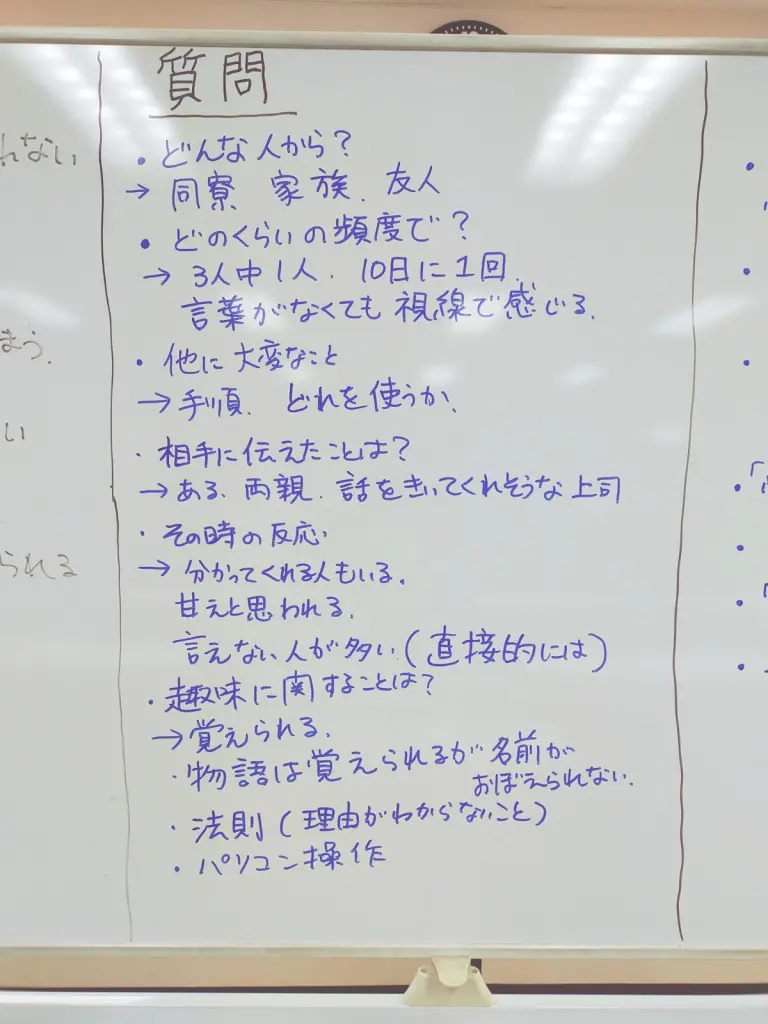 質問
・どんな人から?
→ 同寮 家族、友人
・どのくらいの頻度で?
→ 3人中1人、10日に1回、
言葉がなくても 視線で感じる、
・他に大変なこと
→手順、どれを使うか、
・相手に伝えたことは?
→ある、両親、話をきいてくれそうな上司
・その時の反応
→ 分かってくれる人もいる、
甘えと思われる、
言えない人が多い(直接的には)
・趣味に関することは?
→覚えられる、
・物語は覚えられるが 名前が
おぼえられない、
・法則(理由がわからないこと)
・パソコン操作
れない
まう、
い
られる